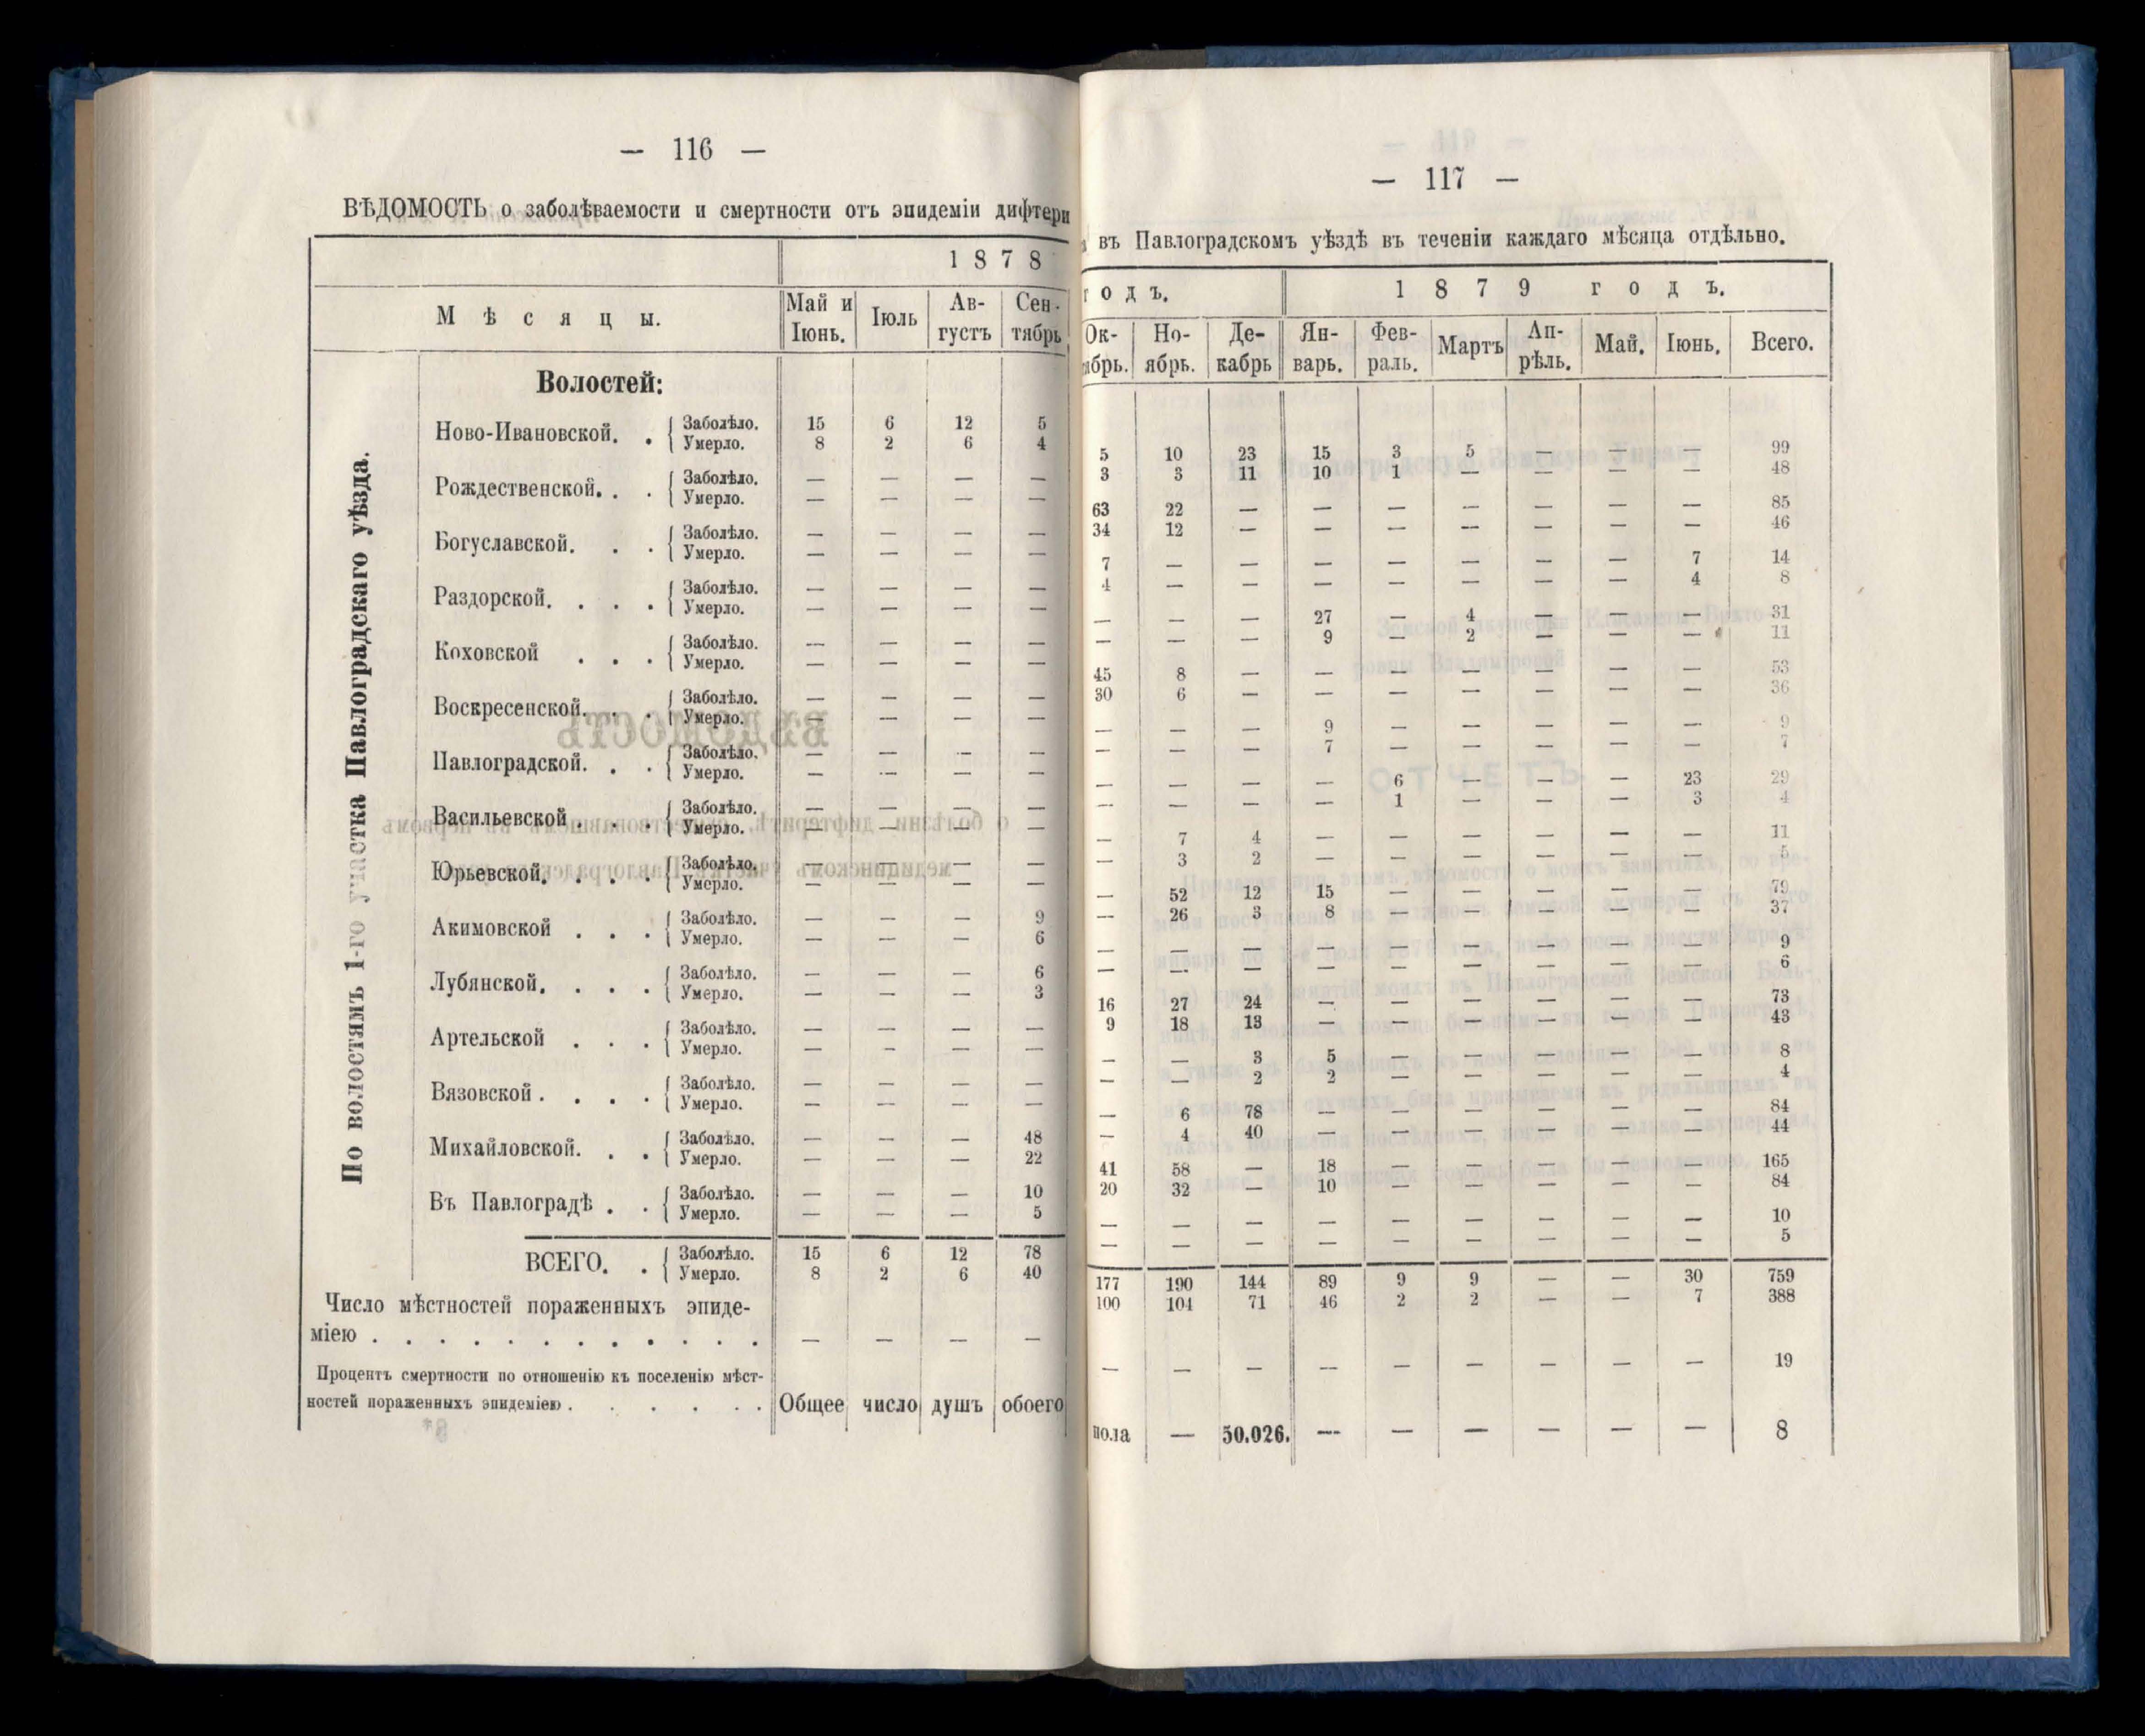 — 116 —
ВѢДОМОСТЬ о заболѣваемости и смертности отъ эпидеміи дифтери
1 8 7 8
Мѣсяцы.
Май и Іюнь.
Іюль
Ав- густъ
Сен- тябрь
Волостей:
По волостямъ 1-го участка Павлоградскаго уѣзда.
Ново-Ивановской. . Заболѣло. 15 6 12 5
Умерло. 8 2 6 4
Рождественской. . . Заболѣло. — — — —
Умерло. — — — —
Богуславской. . . Заболѣло. — — — —
Умерло. — — — —
Раздорской. . . . Заболѣло. — — — —
Умерло. — — — —
Коховской . . . Заболѣло. — — — —
Умерло. — — — —
Воскресенской. . . Заболѣло. — — — —
Умерло. — — — —
Павлоградской. . . Заболѣло. — — — —
Умерло. — — — —
Васильевской . . . Заболѣло. — — — —
Умерло. — — — —
Юрьевской. . . . Заболѣло. — — — —
Умерло. — — — —
Акимовской . . . Заболѣло. — — — 9
Умерло. — — — 6
Лубянской. . . . Заболѣло. — — — 6
Умерло. — — — 3
Артельской . . . Заболѣло. — — — —
Умерло. — — — —
Вязовской . . . . Заболѣло. — — — —
Умерло. — — — —
Михайловской. . . Заболѣло. — — — 48
Умерло. — — — 22
Въ Павлоградѣ . . Заболѣло. — — — 10
Умерло. — — — 5
ВСЕГО. . Заболѣло. 15 6 12 78
Умерло. 8 2 6 40
Число мѣстностей пораженныхъ эпиде-
міею . . . . . . . . . . . . — — — —
Процентъ смертности по отношенію къ поселенію мѣст-
ностей пораженныхъ эпидеміею . . . . . . Общее число душъ обоего
— 117 —
въ Павлоградскомъ уѣздѣ въ теченіи каждаго мѣсяца отдѣльно.
годъ.
1 8 7 9 г о д ъ.
Ок- ябрь.
Но- ябрь.
Де- кабрь
Ян- варь.
Фев- раль.
Мартъ
Ап- рѣль.
Май.
Іюнь.
Всего.
5 10 23 15 3 5 — — — 99
3 3 11 10 1 — — — — 48
63 22 — — — — — — — 85
34 12 — — — — — — — 46
7 — — — — — — — 7 14
4 — — — — — — — 4 8
— — — 27 — 4 — — — 31
— — — 9 — 2 — — — 11
45 8 — — — — — — — 53
30 6 — — — — — — — 36
— — — 9 — — — — — 9
— — — 7 — — — — — 7
— — — — 6 — — — 23 29
— — — — 1 — — — 3 4
— 7 4 — — — — — — 11
— 3 2 — — — — — — 5
— 52 12 15 — — — — — 79
— 26 3 8 — — — — — 37
— — — — — — — — — 9
— — — — — — — — — 6
16 27 24 — — — — — — 73
9 18 13 — — — — — — 43
— — 3 5 — — — — — 8
— — 2 2 — — — — — 4
— 6 78 — — — — — — 84
— 4 40 — — — — — — 44
41 58 — 18 — — — — — 165
20 32 — 10 — — — — — 84
— — — — — — — — — 10
— — — — — — — — — 5
177 190 144 89 9 9 — — 30 759
100 104 71 46 2 2 — — 7 388
— — — — — — — — — 19
пола — 50.026. — — — — — — 8